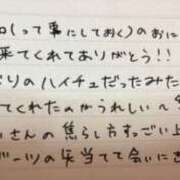 ね(って事にしておく)のおに
来てくれてありがとう!!
ぶりのハイチュだったみた
てくれたのがうれしい〜
いさんの焦らし方すっごい上
パーツの矢当てて会いにき